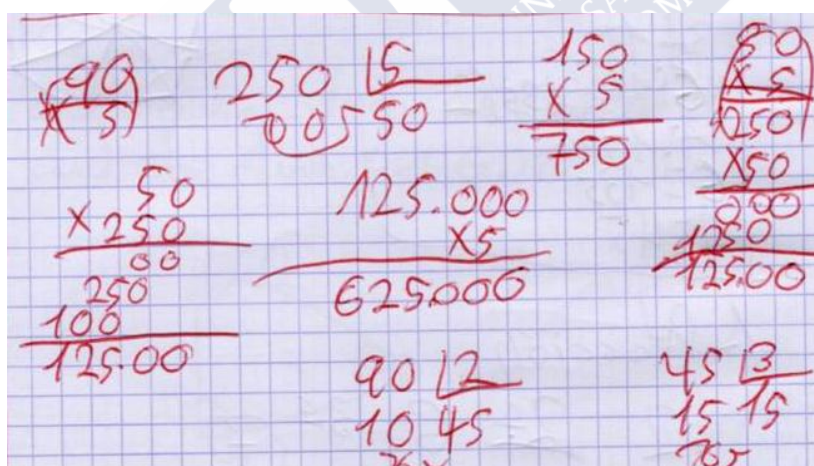 90
X 5
250 |5
005 50
150
X 5
750
50
X 5
250
X50
000
1250
125.00
50
X 250
00
250
100
125.00
125.000
X5
625.000
90 |2
10 45
45 |3
15 15